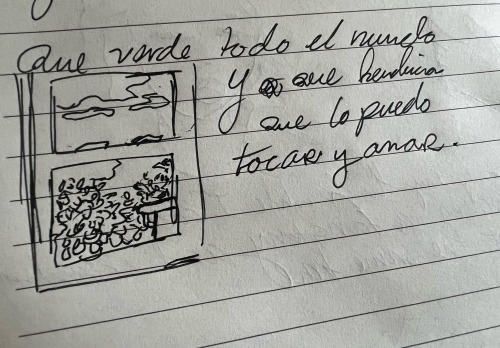 Que verde todo el mundo
y que bendicion
que lo puedo
tocar y amar.